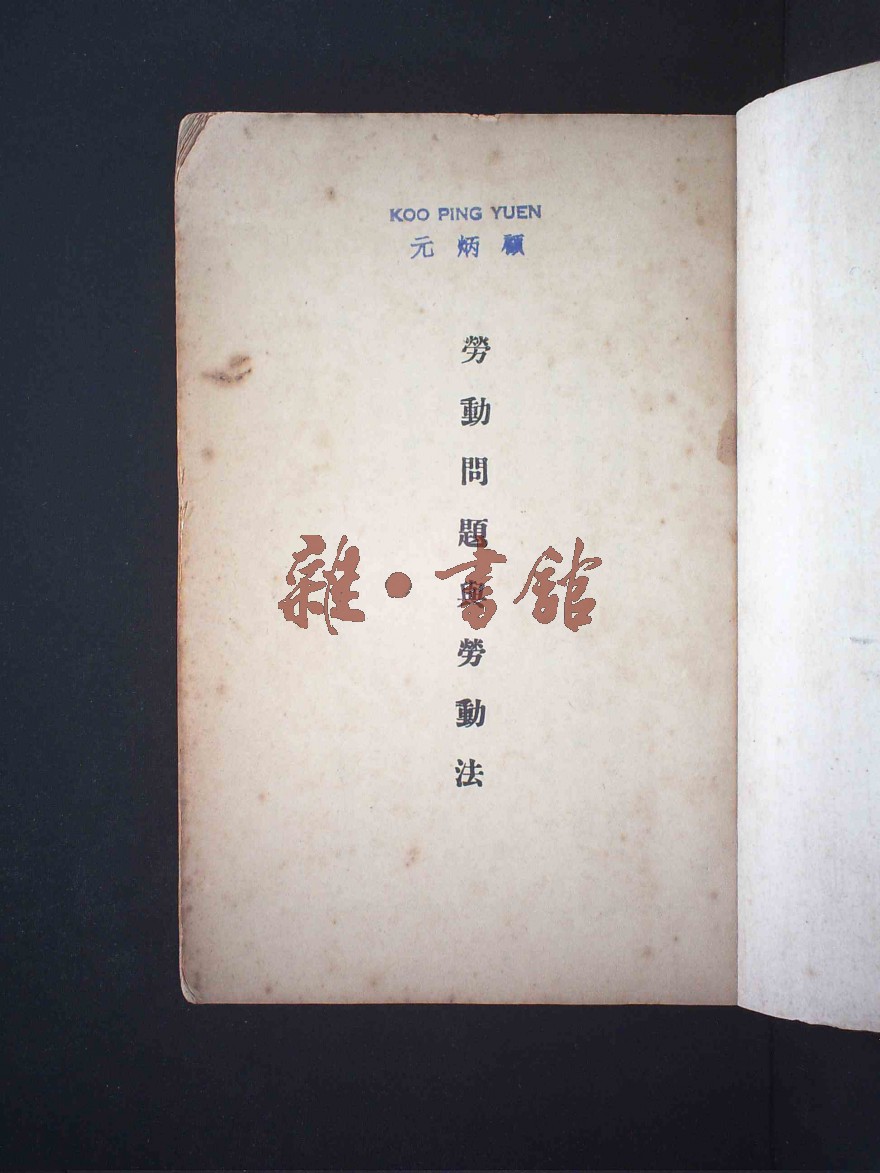 KOO PING YUEN
元炳顧
勞動問題與勞動法
雜·書館